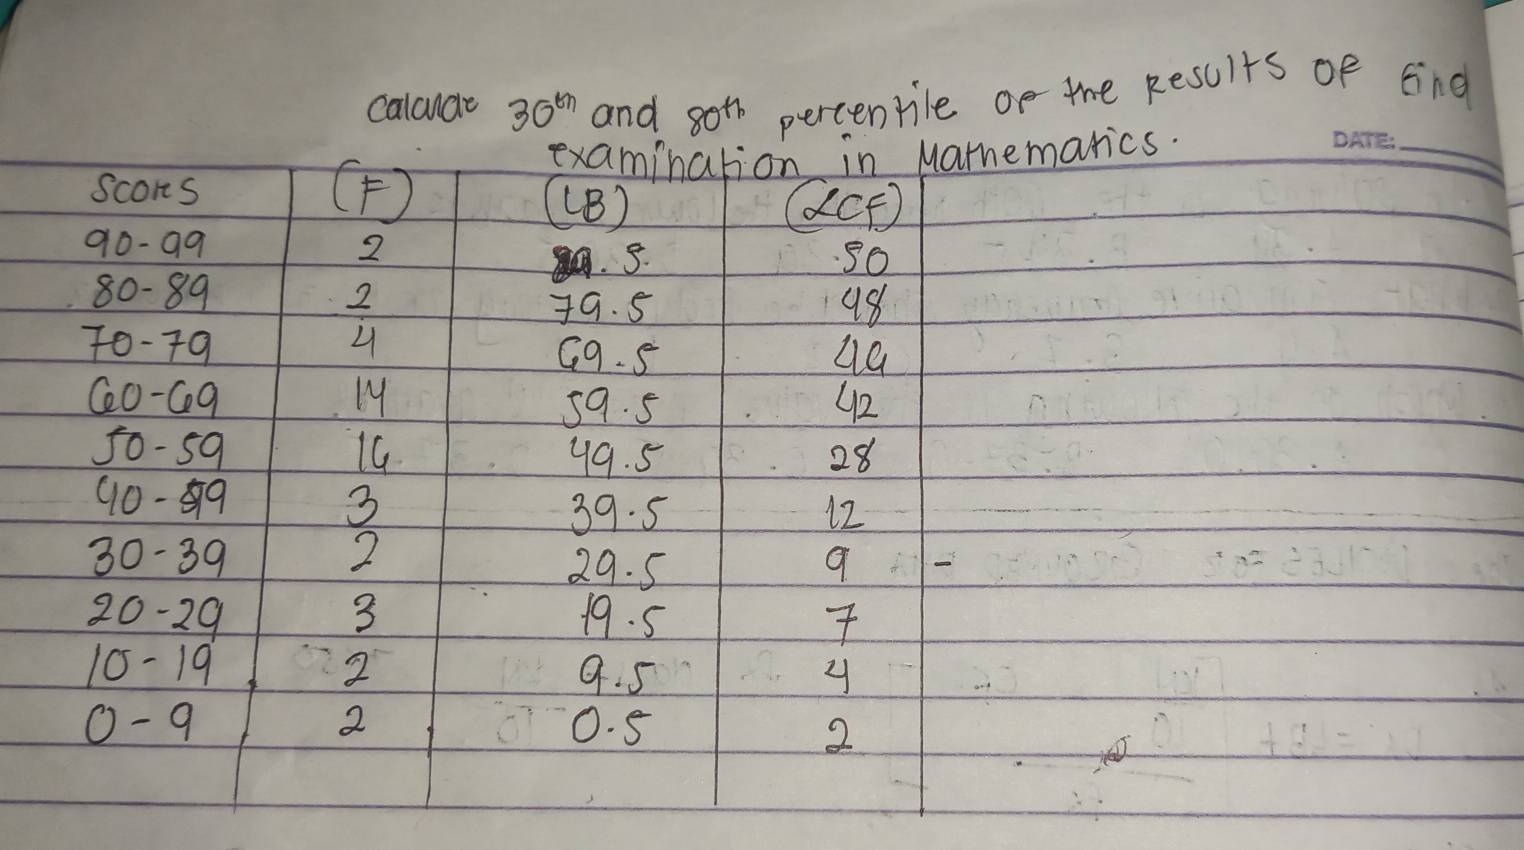 Calculate 30th and 80th percentile of the Results of
examination in Mathematics.
DATE:
Scores (F) (LB) (<CF)
90-99 2 .5 50
80-89 2 79.5 48
70-79 4 69.5 49
60-69 14 59.5 42
50-59 16 49.5 28
40-49 3 39.5 12
30-39 2 29.5 9 -
20-29 3 19.5 7
10-19 2 9.5 4
0-9 2 0.5 2